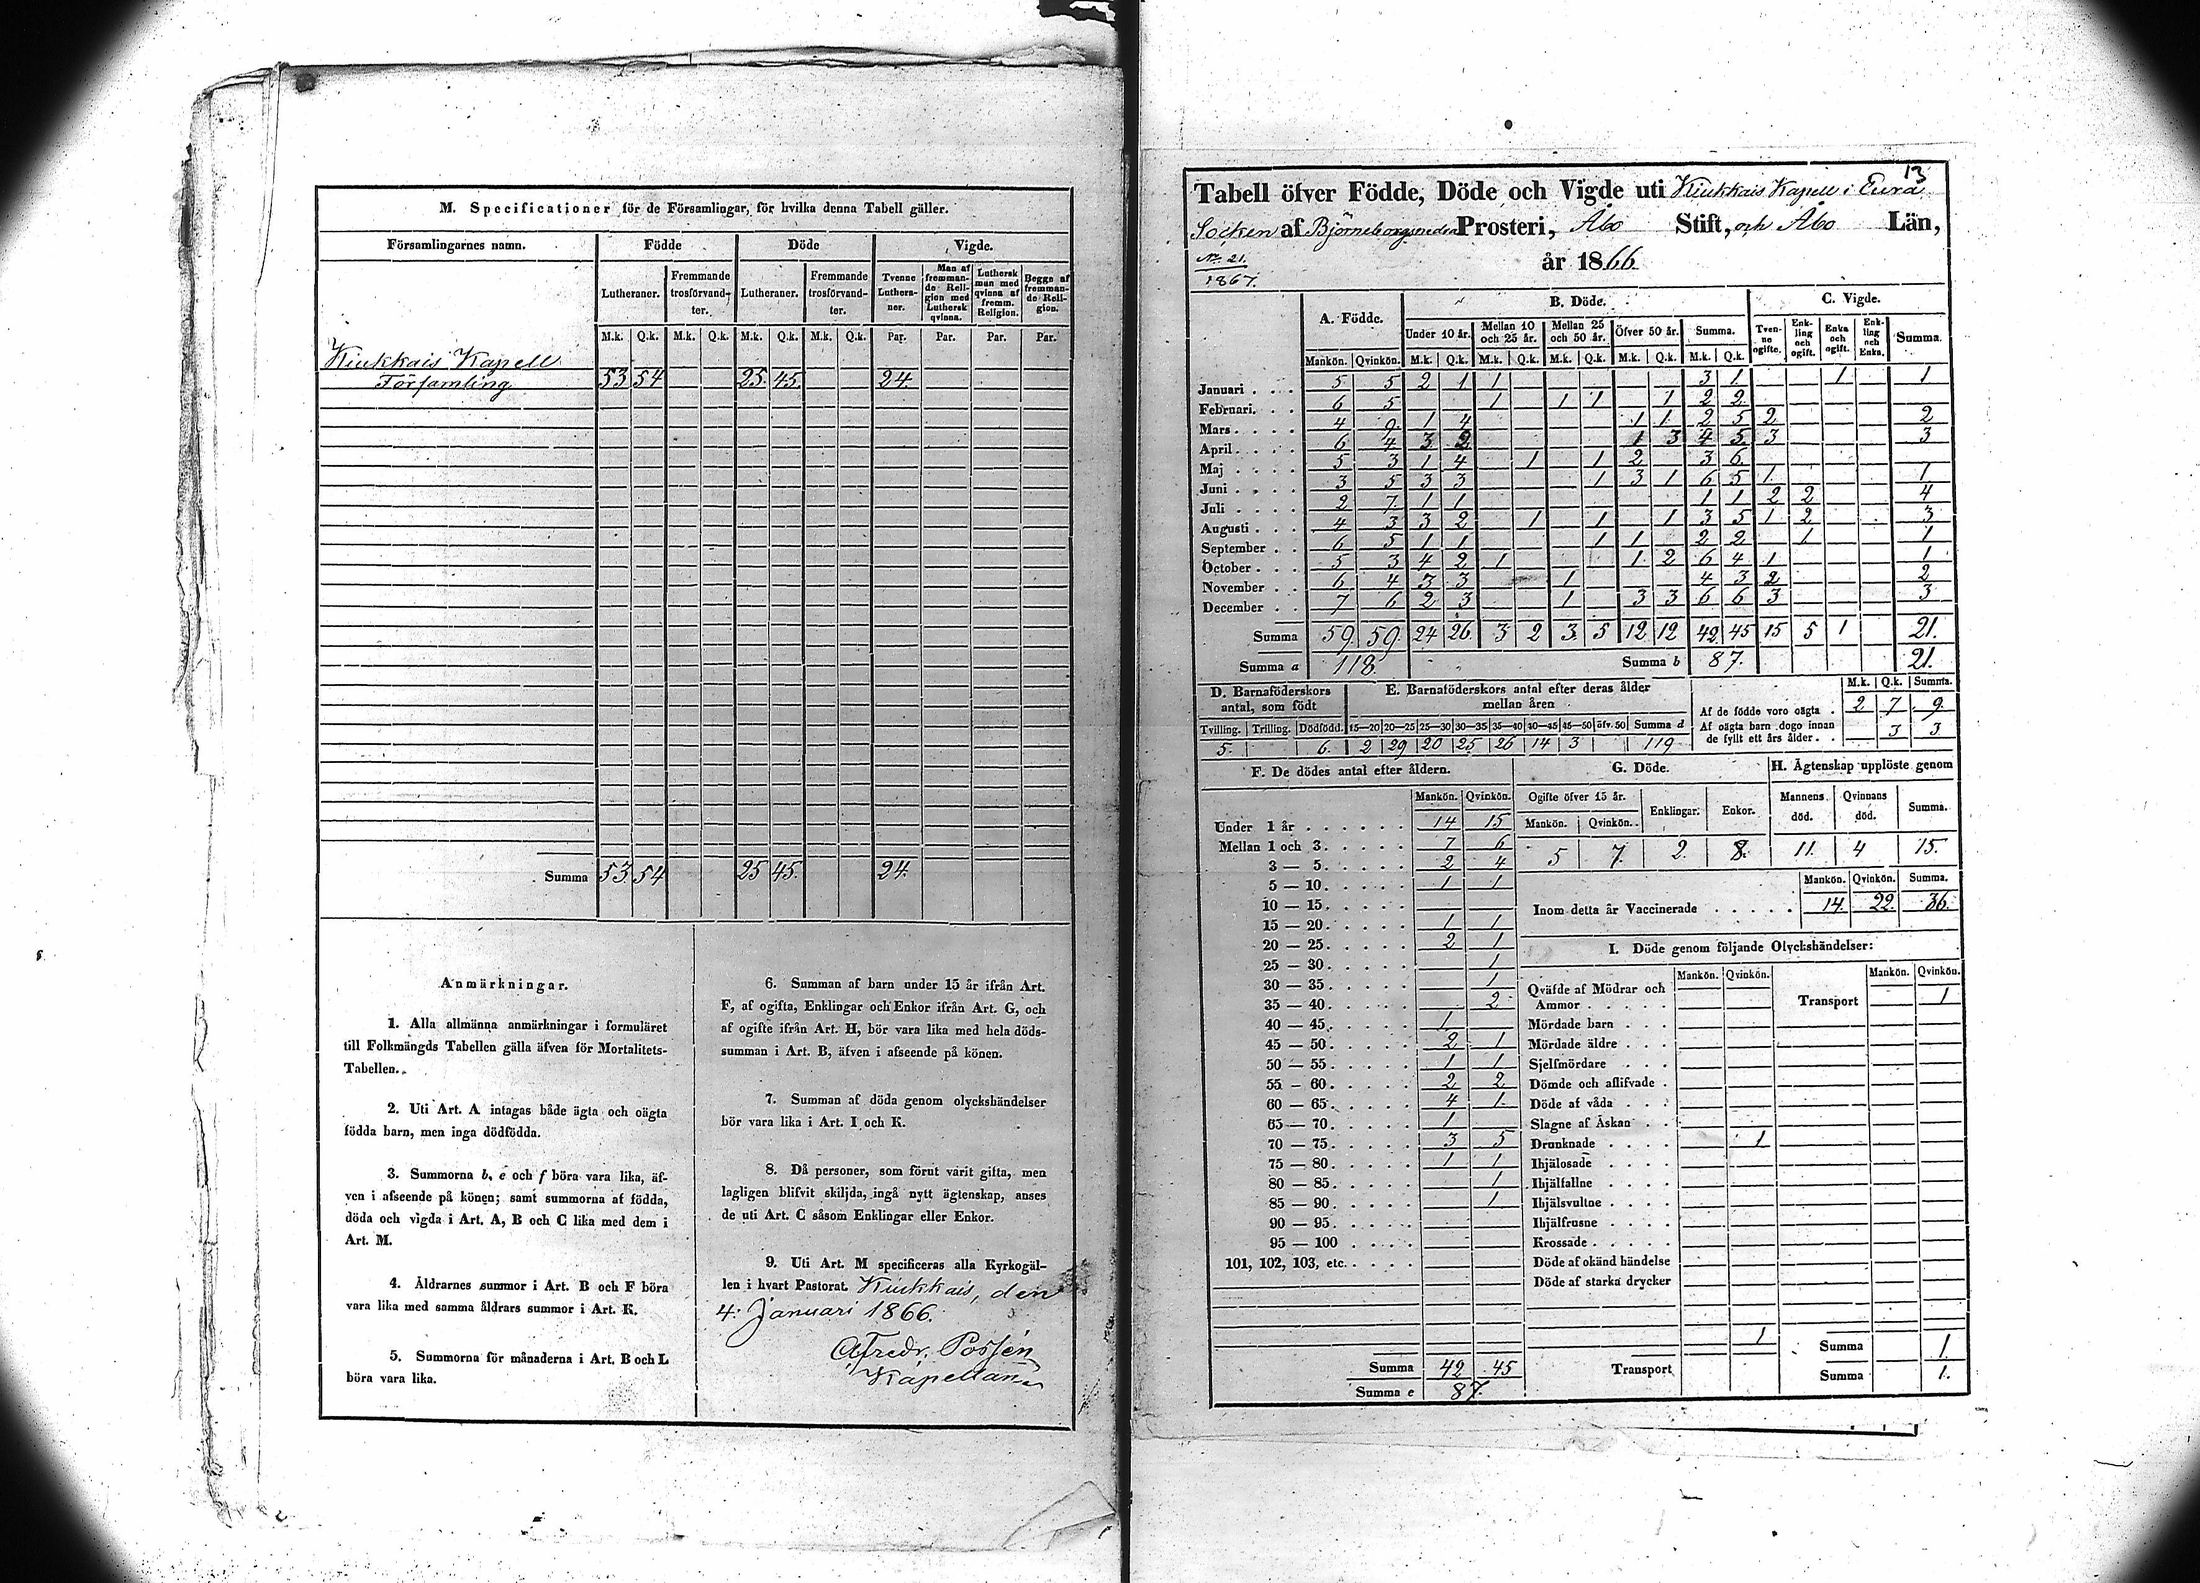 M. Specificationer för de Församlingar, för hvilka denna Tabell gäller.
Församlingarnes namn. Födde Döde Vigde.
Lutheraner. Fremmande trosförvandter. Lutheraner. Fremmande trosförvandter. Tvenne Lutheraner. Man af fremmande Religion med Luthersk qvinna. Luthersk man med qvinna af fremm. Religion. Begge af fremmande Religion.
M.k. Q.k. M.k. Q.k. M.k. Q.k. M.k. Q.k. Par. Par. Par. Par.
Kiukkais Kapell
Församling 53 54 25 45 24
Summa 53 54 25 45 24
Anmärkningar.
1. Alla allmänna anmärkningar i formuläret
till Folkmängds Tabellen gälla äfven för Mortalitets-
Tabellen.
2. Uti Art. A intagas både ägta och oägta
födda barn, men inga dödfödda.
3. Summorna b, e och f böra vara lika, äf-
ven i afseende på könen; samt summorna af födda,
döda och vigda i Art. A, B och C lika med dem i
Art. M.
4. Åldrarnes summor i Art. B och F böra
vara lika med samma åldrars summor i Art. K.
5. Summorna för månaderna i Art. B och L
böra vara lika.
6. Summan af barn under 15 år ifrån Art.
F, af ogifta, Enklingar och Enkor ifrån Art. G, och
af ogifte ifrån Art. H, bör vara lika med hela döds-
summan i Art. B, äfven i afseende på könen.
7. Summan af döda genom olyckshändelser
bör vara lika i Art. I och K.
8. Då personer, som förut varit gifta, men
lagligen blifvit skiljda, ingå nytt ägtenskap, anses
de uti Art. C såsom Enklingar eller Enkor.
9. Uti Art. M specificeras alla Kyrkogäl-
len i hvart Pastorat. Kiukkais, den
4. Januari 1866.
Alfredr. Possén
Kapellan
13
Tabell öfver Födde, Döde och Vigde uti Kiukkais Kapell i Eura
Socken af Björneborgsnedra Prosteri, Åbo Stift, och Åbo Län,
No 21. 1867. år 1866
A. Födde. B. Döde. C. Vigde.
Under 10 år. Mellan 10 och 25 år. Mellan 25 och 50 år. Öfver 50 år. Summa. Tvenne ogifte. Enkling och ogift. Enka och ogift. Enkling och Enka. Summa.
Mankön. Qvinkön. M.k. Q.k. M.k. Q.k. M.k. Q.k. M.k. Q.k. M.k. Q.k.
Januari 5 5 2 1 1 3 1 1 1
Februari 6 5 1 1 1 1 2 2
Mars 4 9 1 4 1 1 2 5 2 2
April 6 4 3 2 1 3 4 5 3 3
Maj 5 3 1 4 1 1 2 3 6
Juni 3 5 3 3 1 3 1 6 5 1 1
Juli 2 7 1 1 1 1 2 2 4
Augusti 4 3 3 2 1 1 1 3 5 1 2 3
September 6 5 1 1 1 1 2 2 1 1
October 5 3 4 2 1 1 2 6 4 1 1
November 6 4 3 3 1 4 3 2 2
December 7 6 2 3 1 3 3 6 6 3 3
Summa 59 59 24 26 3 2 3 5 12 12 42 45 15 5 1 21.
Summa a 118. Summa b 87. 21.
D. Barnaföderskors antal, som födt E. Barnaföderskors antal efter deras ålder mellan åren
Tvilling. Trilling. Dödfödd. 15—20 20—25 25—30 30—35 35—40 40—45 45—50 öfv. 50 Summa d
5 6. 2 29 20 25 26 14 3 119
M.k. Q.k. Summa.
Af de födde voro oägta 2 7 9
Af oägta barn dogo innan de fyllt ett års ålder 3 3
F. De dödes antal efter åldern.
Mankön. Qvinkön.
Under 1 år 14 15
Mellan 1 och 3 7 6
3 — 5 2 4
5 — 10 1 1
10 — 15
15 — 20 1 1
20 — 25 2 1
25 — 30 1
30 — 35 1
35 — 40 2
40 — 45 1
45 — 50 2 1
50 — 55 1 1
55 — 60 2 2
60 — 65 4 1
65 — 70 1
70 — 75 3 5
75 — 80 1 1
80 — 85 1
85 — 90 1
90 — 95
95 — 100
101, 102, 103, etc.
Summa 42 45
Summa e 87.
G. Döde.
Ogifte öfver 15 år. Enklingar. Enkor.
Mankön. Qvinkön.
5 7 2 8
H. Ägtenskap upplöste genom
Mannens död. Qvinnans död. Summa.
11 4 15.
Mankön. Qvinkön. Summa.
Inom detta år Vaccinerade 14 22 36.
I. Döde genom följande Olyckshändelser:
Mankön. Qvinkön. Mankön. Qvinkön.
Qväfde af Mödrar och Ammor
Transport 1
Mördade barn
Mördade äldre
Sjelfmördare
Dömde och aflifvade
Döde af våda
Slagne af Åskan
Drunknade 1
Ihjälosade
Ihjälfallne
Ihjälsvultne
Ihjälfrusne
Krossade
Döde af okänd händelse
Döde af starka drycker
Transport 1
Summa 1
Summa 1.